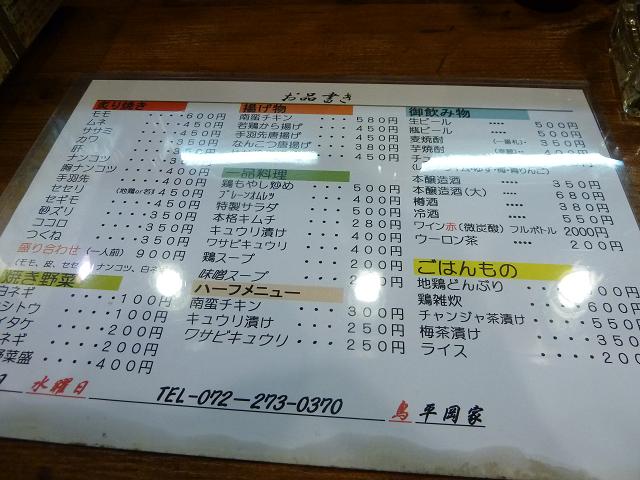 お品書き
炙り焼き
モモ ・・・・600円
ムネ ・・・・450円
ササミ ・・・・450円
カワ ・・・・350円
肝 ・・・・400円
ナンコツ ・・・・400円
胸ナンコツ ・・・・400円
手羽先 ・・・・400円
セセリ (地鶏or若)450円
セギモ ・・・・450円
砂ズリ ・・・350円
ココロ ・・・・350円
つくね ・・・・350円
盛り合わせ(一人前)900円
焼き野菜
白ネギ ・・・・100円
シトウ ・・・・100円
イタケ ・・・・200円
ネギ ・・・・200円
野菜盛 ・・・・400円
揚げ物
南蛮チキン ・・・・580円
若鶏から揚げ ・・・・450円
手羽先唐揚げ ・・・・450円
なんこつ唐揚げ 450円
一品料理
鶏もやし炒め ・・・・500円
プレーンオムレツ ・・・・400円
特製サラダ ・・・・500円
本格キムチ ・・・・400円
キュウリ漬け ・・・・400円
ワサビキュウリ ・・・・400円
鶏スープ ・・・・200円
味噌スープ ・・・・250円
ハーフメニュー
南蛮チキン ・・・・300円
キュウリ漬け ・・・・250円
ワサビキュウリ ・・・・250円
御飲み物
生ビール ・・・・500円
瓶ビール ・・・・500円
麦焼酎 (一番札)・350円
芋焼酎 400円
本醸造酒 ・・・・350円
本醸造酒(大) ・・・・680円
樽酒 ・・・・380円
冷酒 ・・・・550円
ワイン赤(微炭酸)フルボトル 2000円
ウーロン茶 ・・・・200円
ごはんもの
地鶏どんぶり
鶏雑炊 ・・・・600円
チャンジャ茶漬け ・・・・550円
梅茶漬け ・・・・350円
ライス ・・ 200
日 水曜日 TEL-072-273-0370 鳥 平岡家